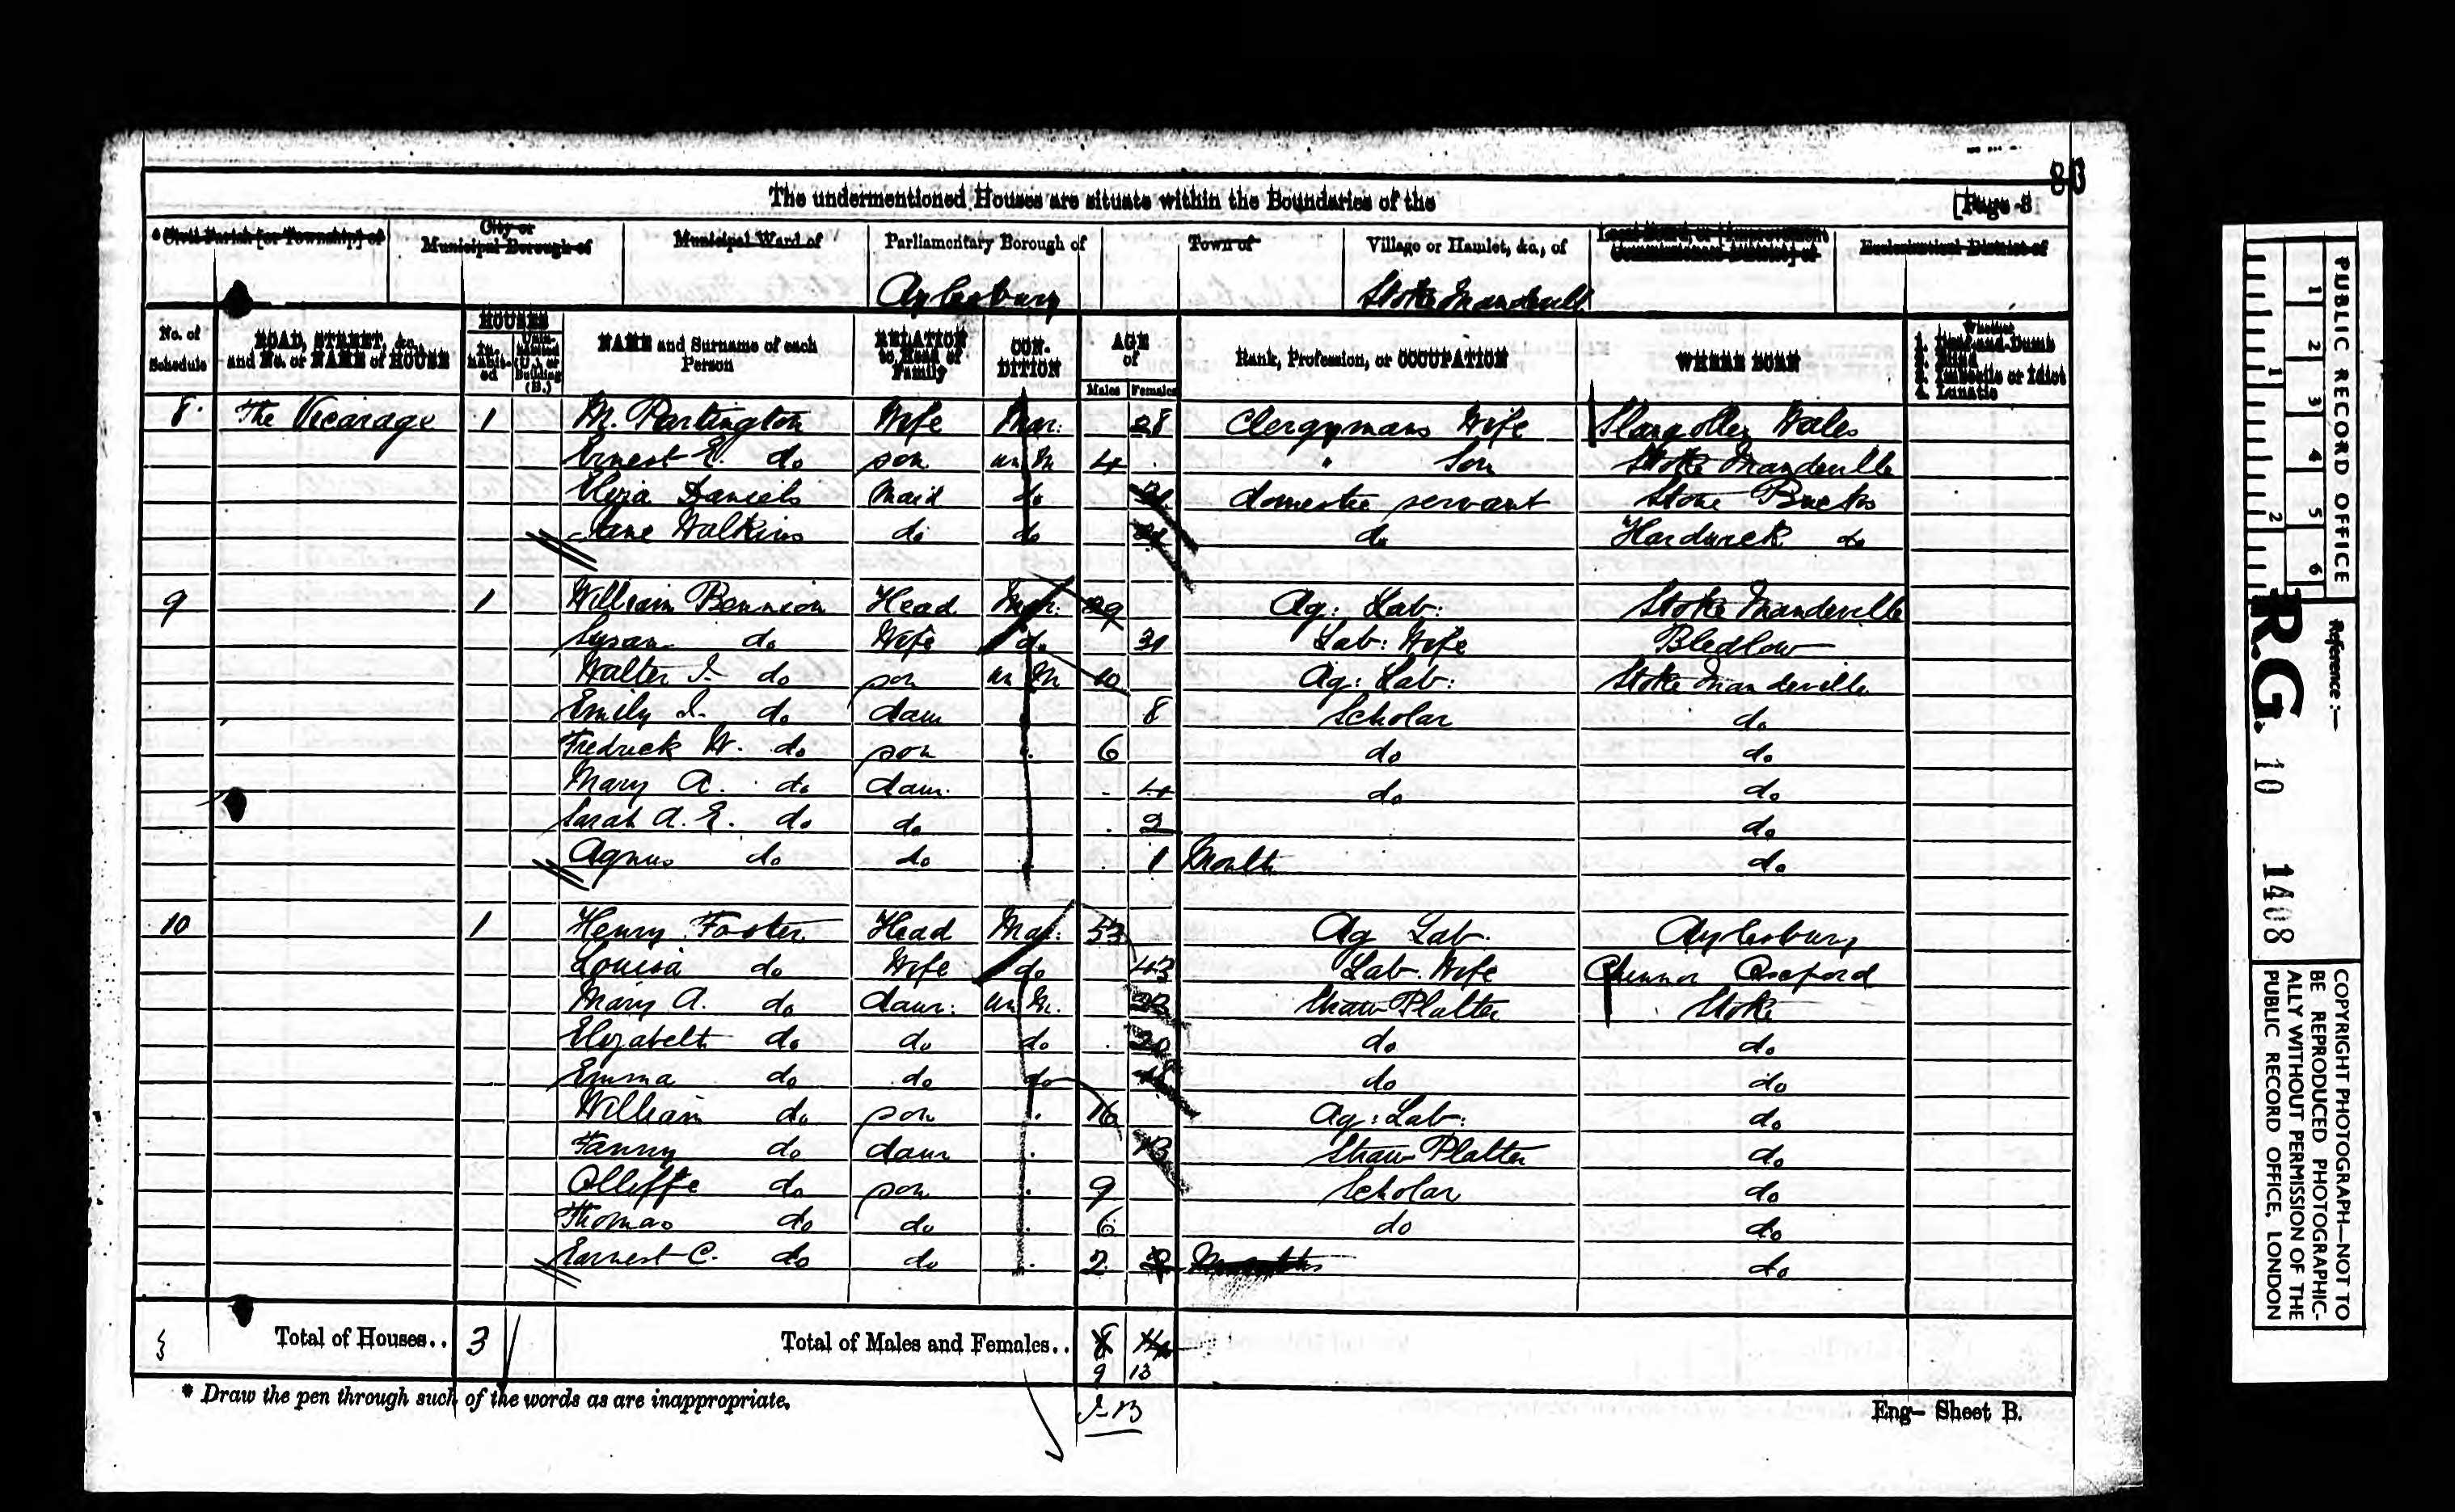 83
The undermentioned Houses are situate within the Boundaries of the [Page 3
* Civil Parish [or Township] of City or Municipal Borough of Municipal Ward of Parliamentary Borough of Town of Village or Hamlet, &c., of Local Board, or [Improvement Commissioners District] of Ecclesiastical District of
Aylesbury Stoke Mandeville
No. of Schedule ROAD, STREET, &c., and No. or NAME of HOUSE HOUSES Inhabited Uninhabited (U.), or Building (B.) NAME and Surname of each Person RELATION to Head of Family CONDITION AGE of Males Females Rank, Profession, or OCCUPATION WHERE BORN Whether 1. Deaf-and-Dumb 2. Blind 3. Imbecile or Idiot 4. Lunatic
8. The Vicarage 1 M. Partington Wife Mar: 28 Clergymans Wife Llangollen Wales
Ernest E. do son un M 4 " Son Stoke Mandeville
Eliza Daniels Maid do domestic servant Stone Bucks
Jane Watkins do do do Hardwick do
9 1 William Bennion Head Mar: 29 Ag: Lab: Stoke Mandeville
Susan do Wife do 31 Lab: Wife Bledlow
Walter J. do son un M 10 Ag: Lab: Stoke Mandeville
Emily J. do daur 8 Scholar do
Fredrick W. do son 6 do do
Mary A. do daur. 4 do do
Sarah A. E. do do 2 do
Agnus do do 1 Month do
10 1 Henry Foster Head Mar: 53 Ag Lab. Aylesbury
Louisa do Wife do 43 Lab. Wife Chinnor Oxford
Mary A. do daur: un M. 22 Straw Platter Stoke
Elizabeth do do do 20 do do
Emma do do do 18 do do
William do son 16 Ag: Lab: do
Fanny do daur 13 Straw Platter do
Olliffe do son 9 Scholar do
Thomas do do 6 do do
Earnest C. do do 2 2 Months do
3 Total of Houses.. 3 Total of Males and Females.. 8 14
9 13
* Draw the pen through such of the words as are inappropriate.
Eng— Sheet B.
PUBLIC RECORD OFFICE
1 2 3 4 5 6
1 2
Reference :—
R.G. 10 1408
COPYRIGHT PHOTOGRAPH—NOT TO
BE REPRODUCED PHOTOGRAPHIC-
ALLY WITHOUT PERMISSION OF THE
PUBLIC RECORD OFFICE, LONDON